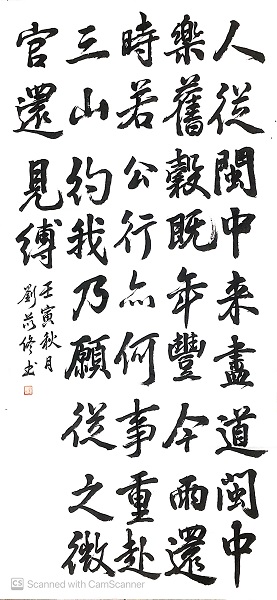 人從閩中来盡道閩中
樂舊穀既年豐今雨還
時若公行亦何事重赴
三山約我乃願從之微
官還見縛
壬寅秋月
劉修书
CS Scanned with CamScanner